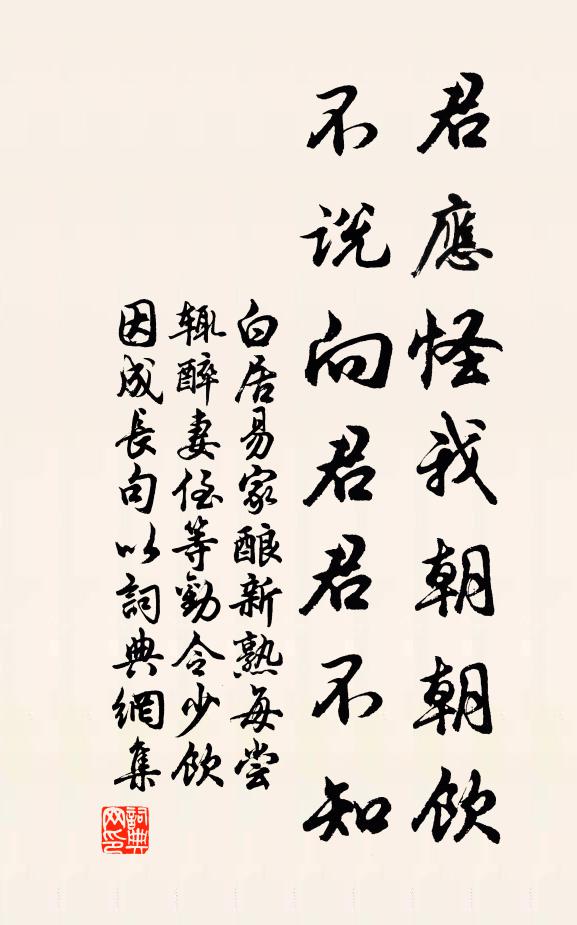 君應怪我朝朝飲
不説向君君不知
白居易家酿新熟每尝
辄醉妻侄等勸令少飲
因成長句以詞典網集
詞典
网印